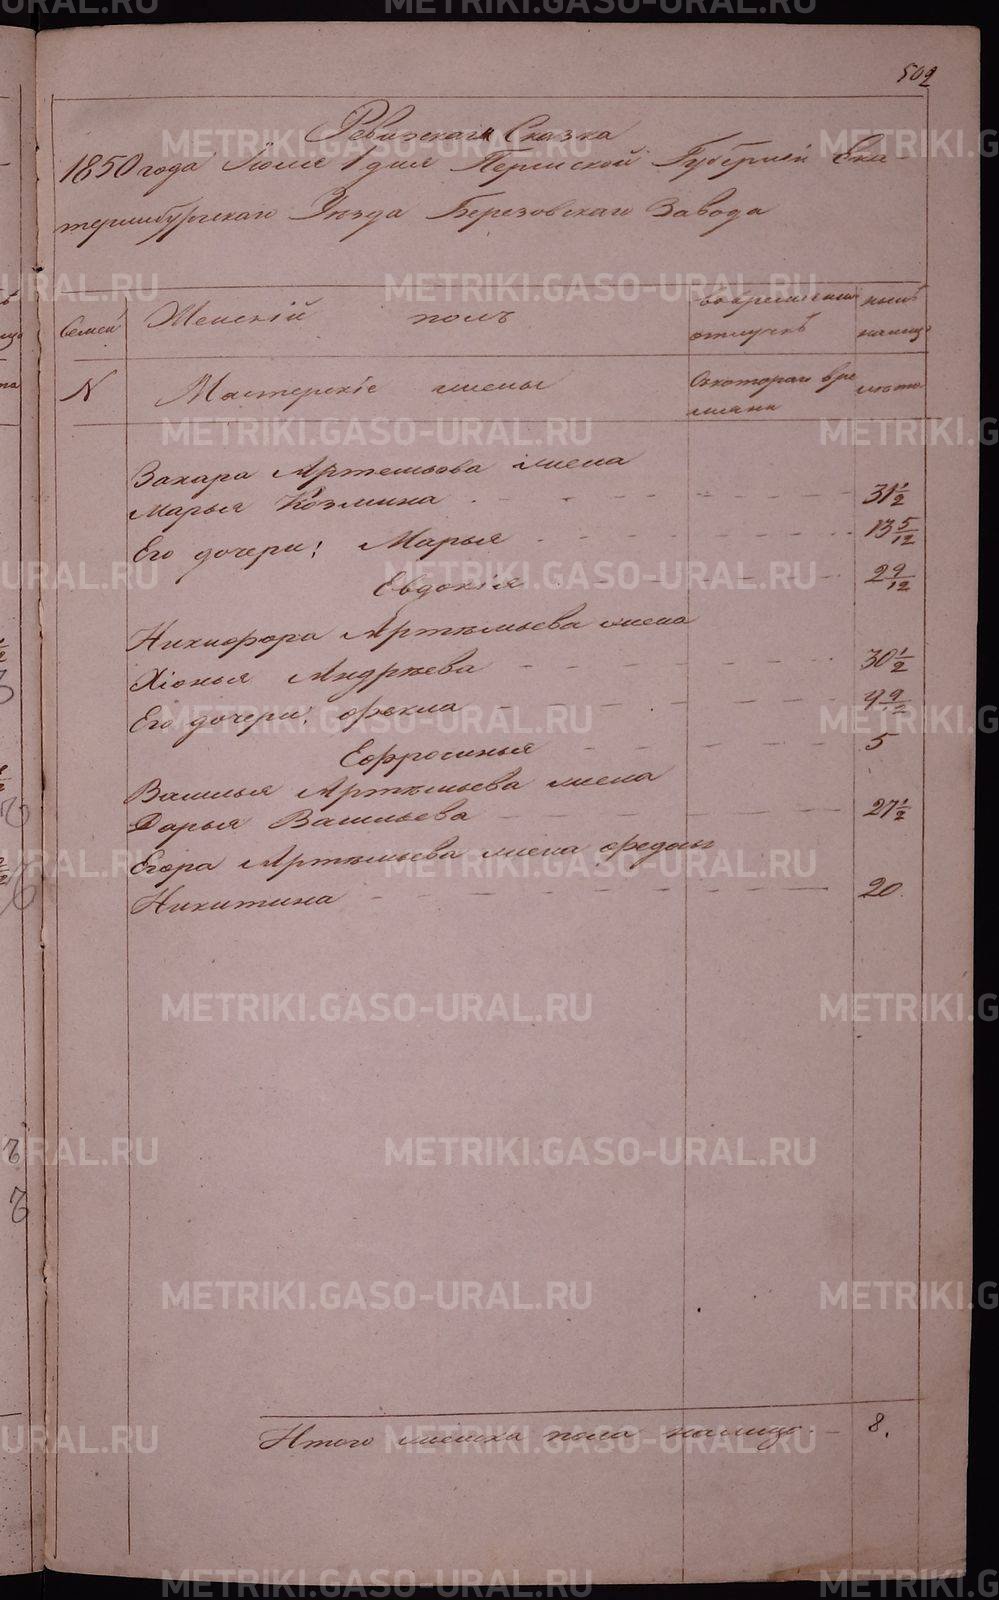 502
Ревизская Сказка
1850 года Июля 1 дня Пермской Губернiи Ека-
теринбургскаго Уѣзда Березовскаго Завода
Семей
Женскiй полъ
во временной отлучкѣ
нынѣ на лицо
N
Мастерскiе жены
Съ котораго времяни
лѣта
Захара Артемьева жена
Марья Козмина - - - 31 1/2
Его дочери: Марья - - - 13 5/12
Евдокiя - - - 2 9/12
Никифора Артѣмьева жена
Хiонья Андрѣева - - - 30 1/2
Его дочери: Фекла - - - 9 9/12
Ефросинья - - - 5
Василья Артѣмьева жена
Дарья Васильева - - - 27 1/2
Егора Артѣмьева жена Федосья
Никитина - - - 20.
Итого женска пола на лицо - 8.
METRIKI.GASO-URAL.RU